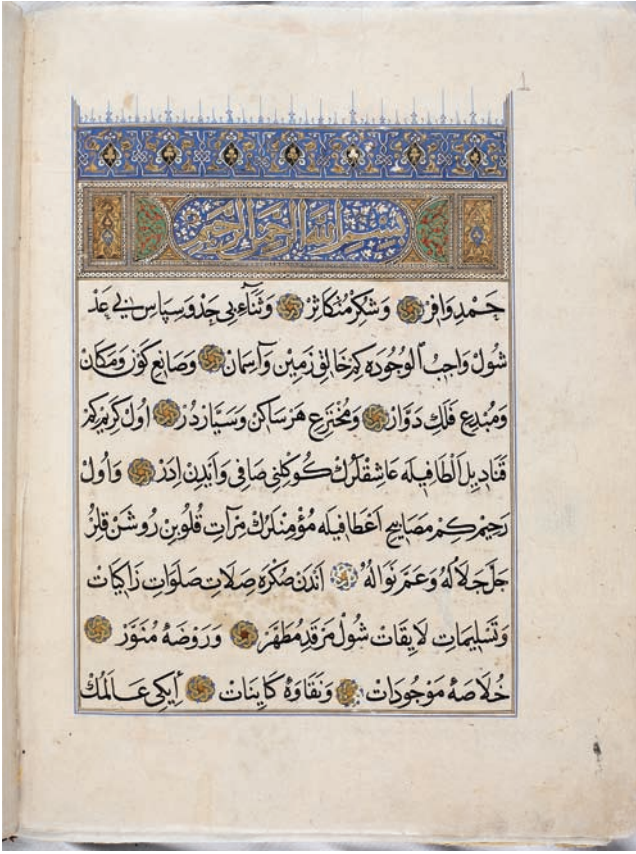 1
بسم الله الرحمن الرحيم
حَمْدِ وَافِرْ وَشُكْرِ مُتَكَاثِرْ وَثَنَاءِ بِى حَدْ وَسِپَاسِ بِى عَدْ
شُولْ وَاجِبُ الْوُجُودَه كِمْ خَالِقِ زَمِينْ وَآسِمَانْ وَصَانِعِ كَوْنْ وَمَكَانْ
وَمُبْدِعِ فَلَكِ دَوَّارْ وَمُخْتَرِعِ هَرْ سَاكِنْ وَسَيَّارْدُرْ اولْ كَرِيمْ كِمْ
قَنَادِيلِ اَلْطَافِيلَه عَاشِقْلَرُكْ كُوكُلْنِى صَافِى وَآيْدِنْ اِدَرْ وَاُولْ
رَحِيمْ كِمْ مَصَابِيحِ اَعْطَافِيلَه مُؤْمِنْلَرُكْ مِرْآتِ قُلُوبِنْ رُوشَنْ قِلُرْ
جَلَّ جَلَالُهُ وَعَمَّ نَوَالُهُ اَنْدَنْ صُكْرَه صِلَاتِ صَلَوَاتِ زَاكِيَاتْ
وَتَسْلِيمَاتِ لَايِقَاتْ شُولْ مَرْقَدِ مُطَهَّرْ وَرَوْضَهٔ مُنَوَّرْ
خُلَاصَهٔ مَوْجُودَاتْ وَنَقَاوَهٔ كَايِنَاتْ اِيكِى عَالَمُكْ